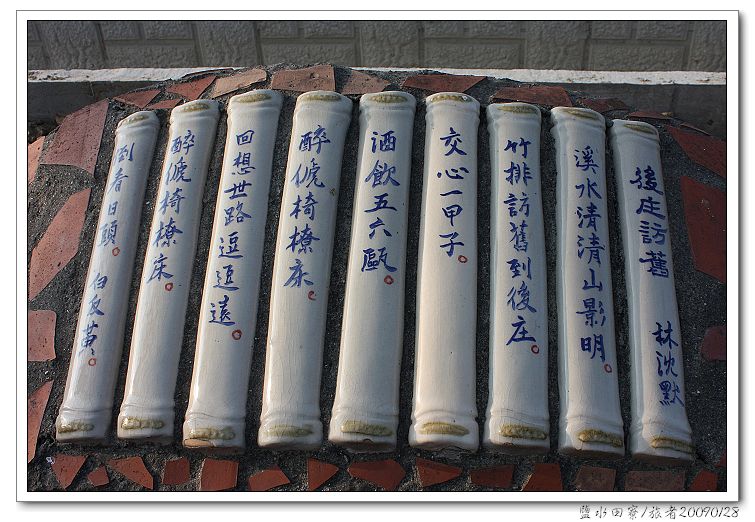 後庄訪舊 林沈默
溪水清清山影明。
竹排訪舊到後庄。
交心一甲子。
酒飲五六甌。
醉傂椅橑床。
回想世路逗逗遠。
醉傂椅橑床。
倒看日頭。白反黃。
鹽水田寮/旅者20090128